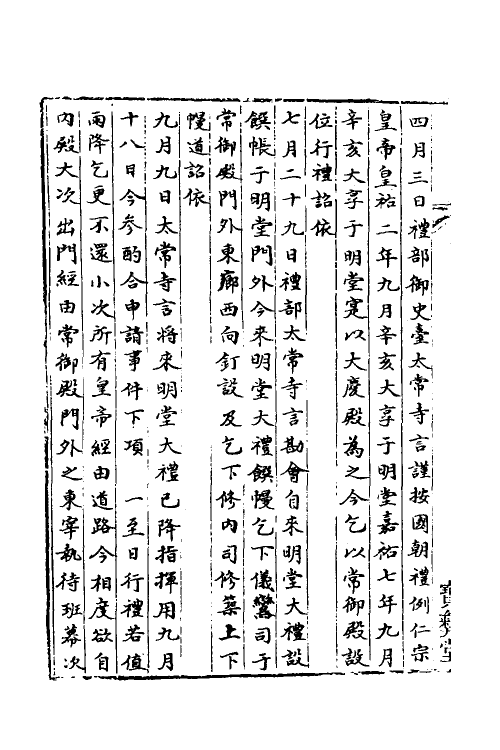 四月三日禮部御史臺太常寺言謹按國朝禮例仁宗
皇帝皇祐二年九月辛亥大享于明堂嘉祐七年九月
辛亥大享于明堂寔以大慶殿為之今乞以常御殿設
位行禮詔依
七月二十九日禮部太常寺言勘會自來明堂大禮設
饌帳于明堂門外今來明堂大禮饌幔乞下儀鸞司于
常御殿門外東廊西向釘設及乞下修內司修築上下
幔道詔依
九月九日太常寺言將來明堂大禮已降指揮用九月
十八日今參酌合申請事件下項 一至日行禮若值
雨降乞更不還小次所有皇帝經由道路今相度欲自
內殿大次出門經由常御殿門外之東宰執待班幕次